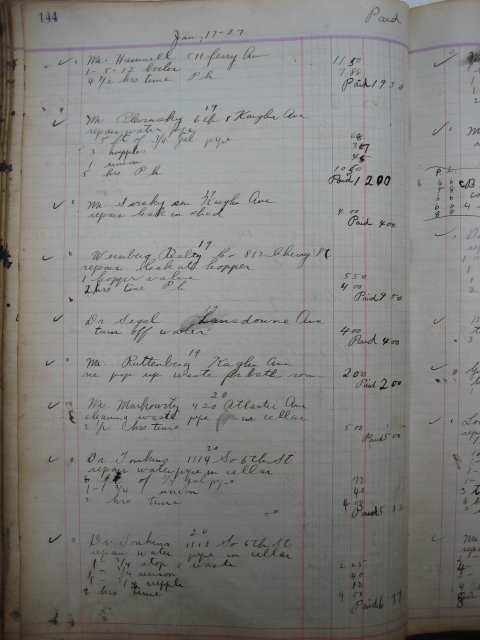 144
Paid
Jan. 17-27
Mr. Hammell 511 ferry Ave
1 - 5 - 12 boiler 11 50
4 1/2 hrs time P.h 7 88
Paid 19 38
19
Mr 6th & Kaighn Ave
repair water pipe
15 ft of 3/4 gal pipe 68
3 nipples
1 union 45
5 hrs P.h 10 50
Paid 12 00
Mr Kaighn Ave
repair leak in shed 4 00
Paid 4 00
19
Weinberg Realty Co 812 Cherry St
repair leak at hopper
1 hopper valve 5 50
2 hrs time P.h 4 00
Paid 9 50
19
Dr Segal Lansdowne Ave
turn off water 4 00
Paid 4 00
19
Mr. Ruttenburg Kaighn Ave
up waste for bath room 2 00
Paid 2 00
20
Mr. Markowitz 420 Atlantic Ave
cleaning waste pipe in cellar
2 1/2 hrs time 5 00
Paid 5 00
20
Dr. 1114 So 6th St
repair water pipe in cellar
6 ft of 3/4 gal pipe 72
1 - 3/4 union 40
2 hrs time 4 00
Paid 5 12
20
Dr. 1118 So 6th St
repair water pipe in cellar
1 - 3/4 stop & waste 2 25
1 - 3/4 union 40
1 - 3/4 nipple 12
2 hrs time 4 00
Paid 6 77